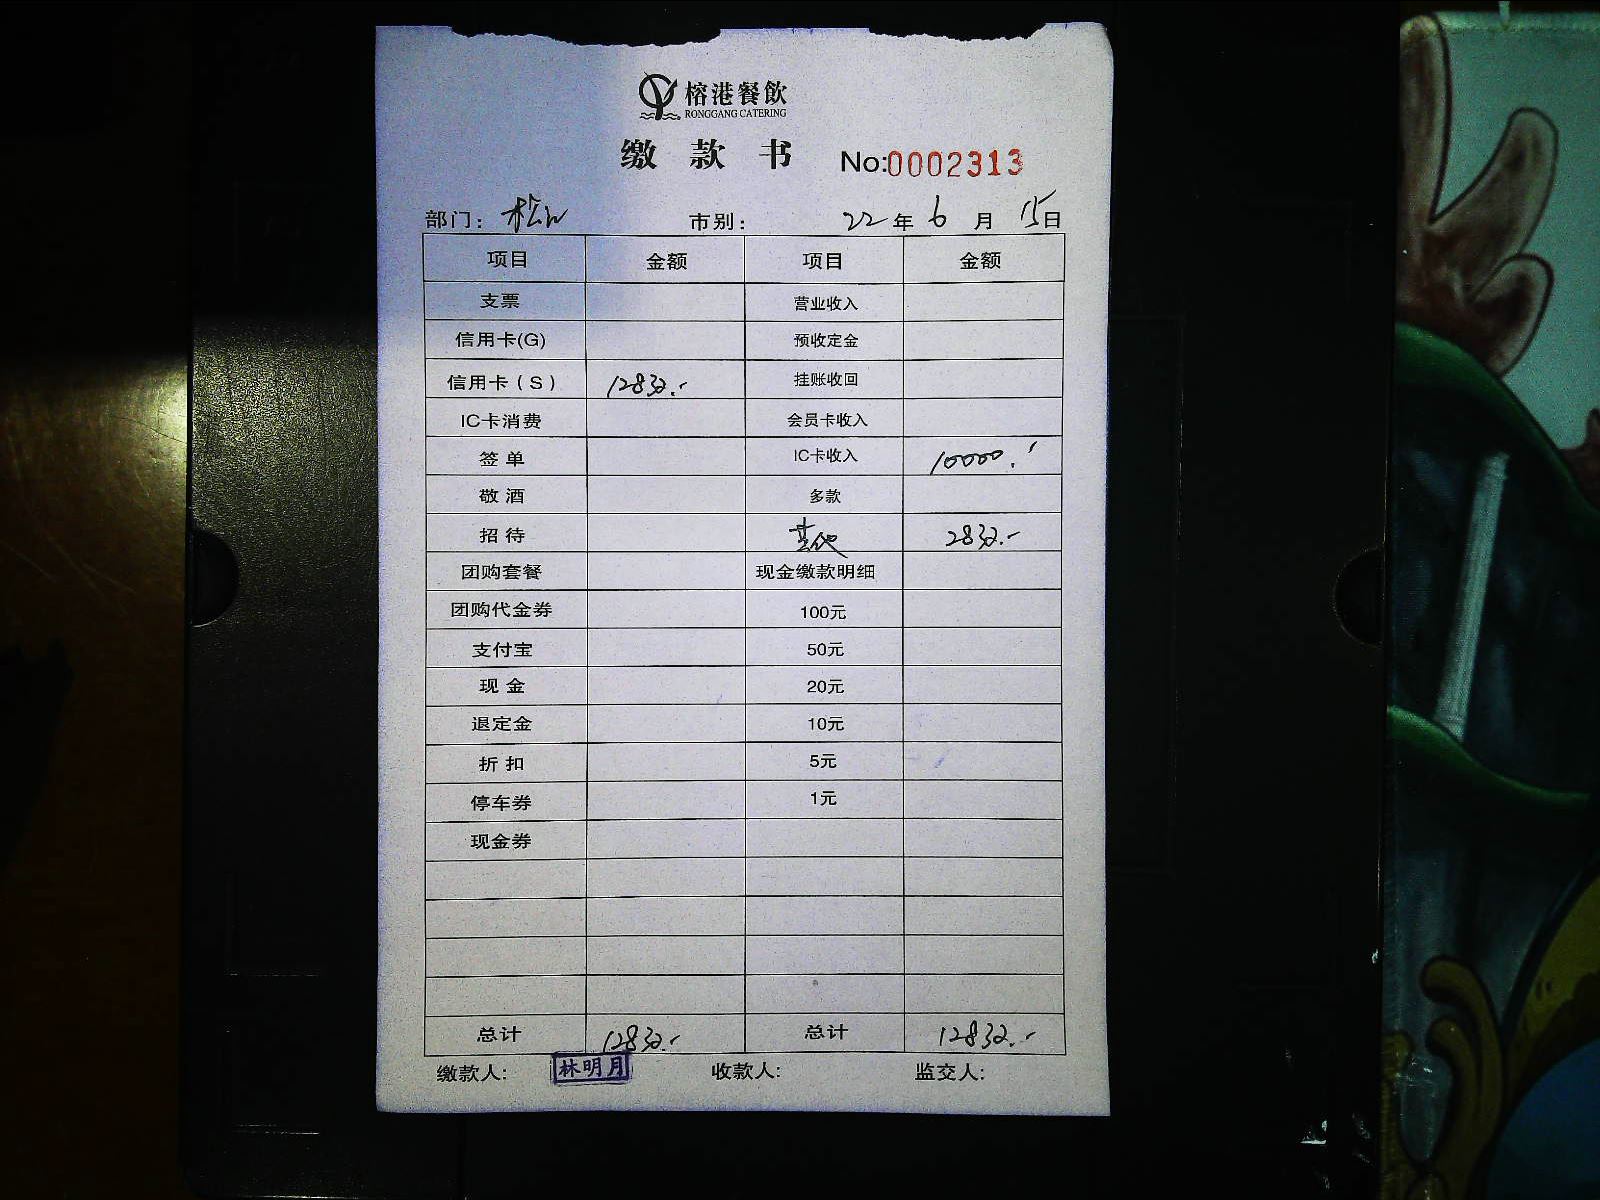 榕港餐飲
RONGGANG CATERING
缴款书 No:0002313
部门: 松山 市别: 22年6月15日
项目 金额 项目 金额
支票 营业收入
信用卡(G) 预收定金
信用卡(S) 12832.- 挂账收回
IC卡消费 会员卡收入
签单 IC卡收入 10000.-
敬酒 多款
招待 2832.-
团购套餐 现金缴款明细
团购代金券 100元
支付宝 50元
现金 20元
退定金 10元
折扣 5元
停车券 1元
现金券
总计 12832.- 总计 12832.-
缴款人: 林明月 收款人: 监交人: